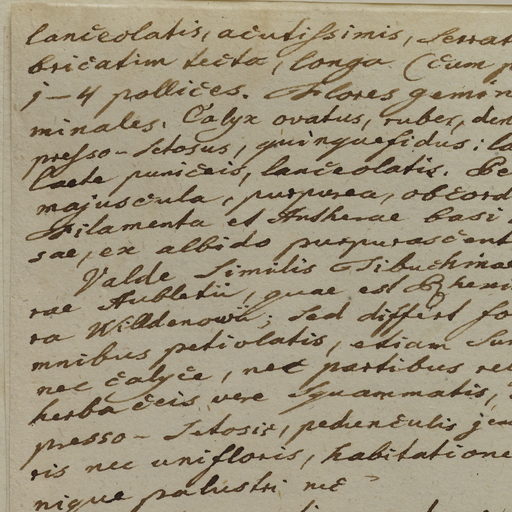 lanceolatis, acutissimis, serrat
bricatim tecta, longa (cum p
j-4 pollices. Flores gemin
minales. Calyx ovatus, ruber, den
presso-setosus, quinquefidus: la
laete puniceis, lanceolatis. Pe
majuscula, purpurea, obcord
Filamenta et Antherae basi
sae, ex albido purpurascent
Valde similis Tibuchinae
rae Aubletii, quae est Rhexi
ra Willdenowii; sed differt fo
mnibus petiolatis, etiam sum
nec calyce, nec partibus re
herbaceis vere squammatis,
presso-setosis, pedunculis ge
ris nec unifloris, habitatione
nique palustri nec